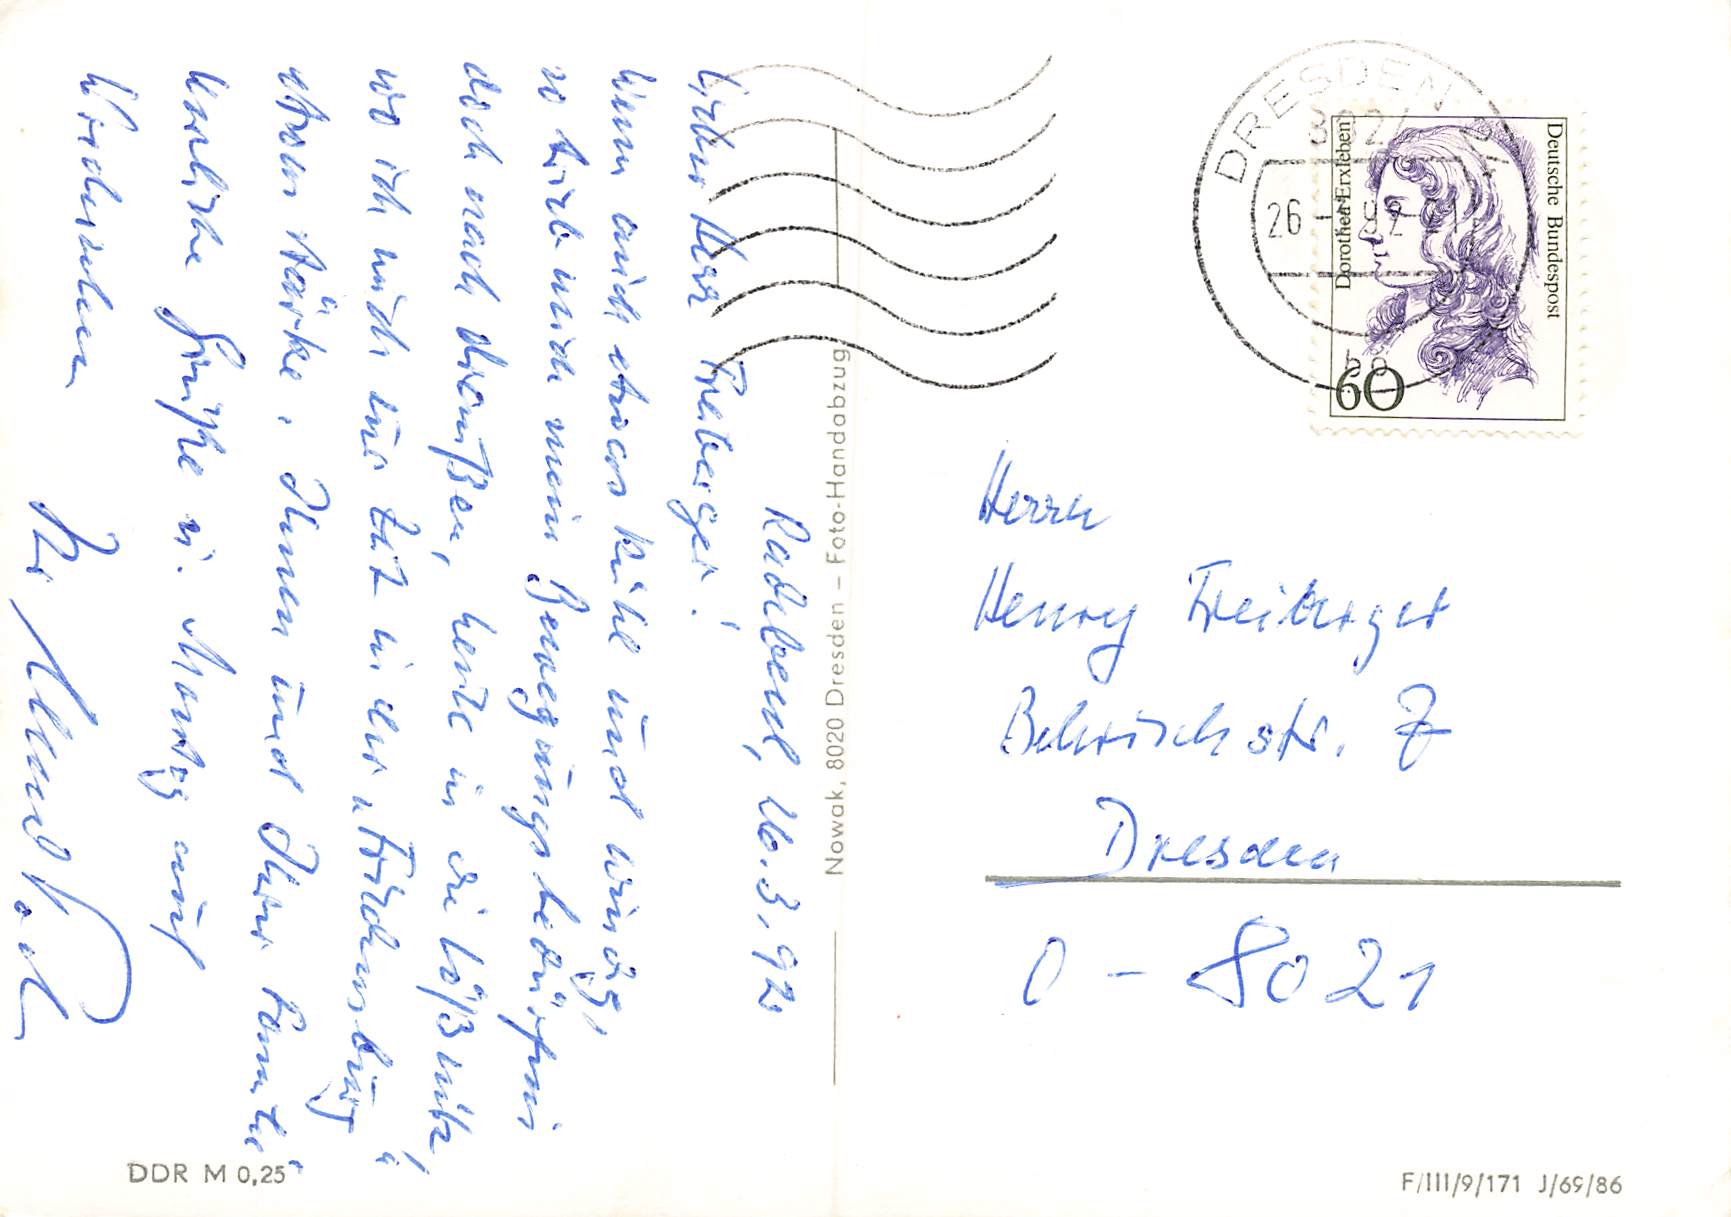 Radebeul, 26.3.92
Lieber Herr Freiberger!
Wenn auch etwas kühl und windig,
so trieb mich mein Bewegungsbedürfnis
doch nach draußen, heute in die Lößnitz,
wo ich mich zur Zeit in der "Friedensburg"
etwas stärke. Ihnen und Ihrer Familie
herzliche Grüße u. Montag auf
Wiedersehen
Ihr
Nowak, 8020 Dresden – Foto-Handabzug
DDR M 0,25
DRESDEN
26
92
Deutsche Bundespost
Dorothea Erxleben
60
Herrn
Henry Freiberger
Behrischstr. 7
Dresden
O - 8021
F/III/9/171 J/69/86